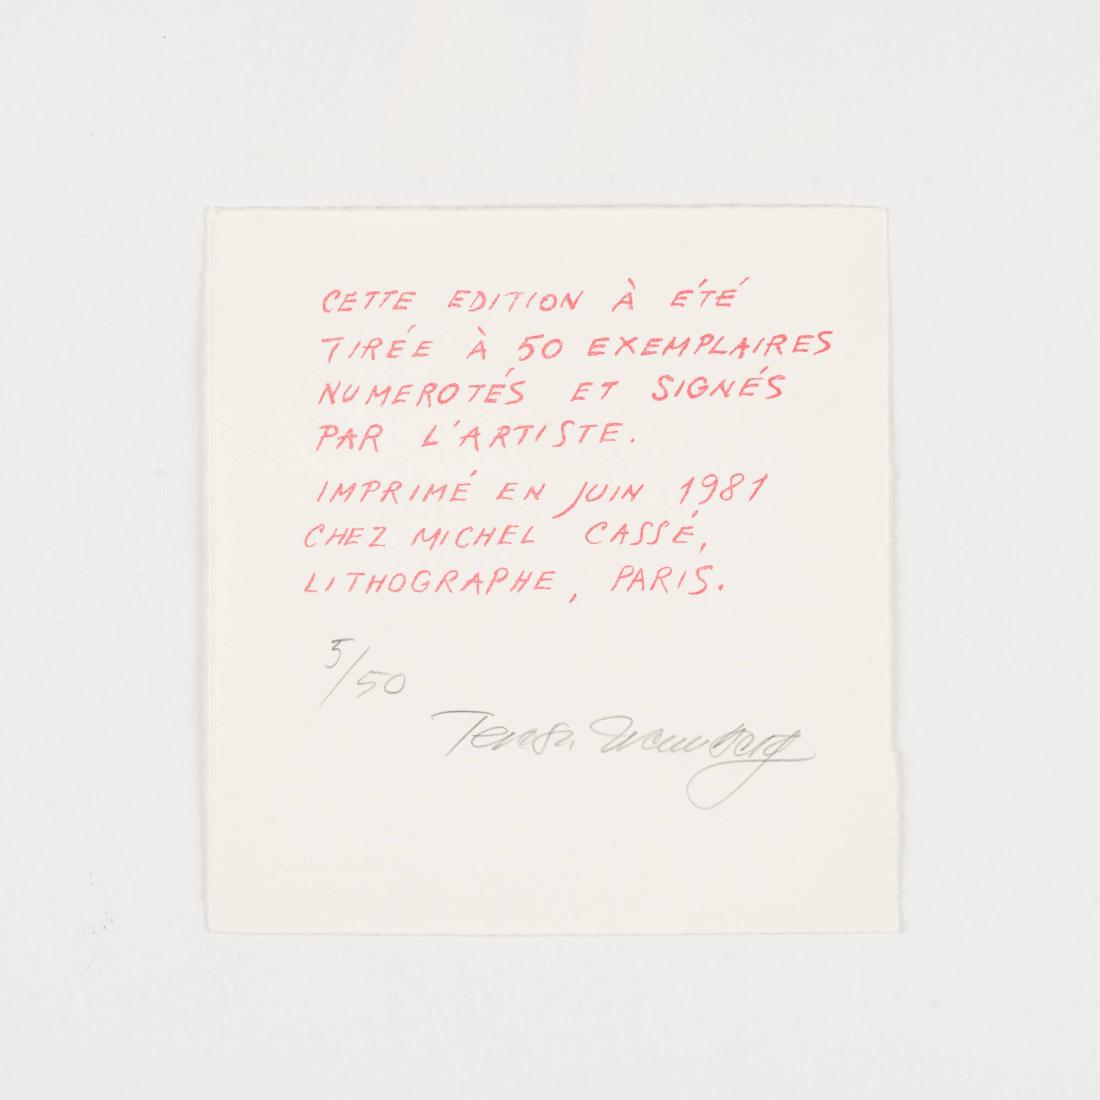 CETTE EDITION À ÉTÉ
TIRÉE À 50 EXEMPLAIRES
NUMEROTÉS ET SIGNÉS
PAR L'ARTISTE.
IMPRIMÉ EN JUIN 1981
CHEZ MICHEL CASSÉ,
LITHOGRAPHE, PARIS.
5/50
Teresa